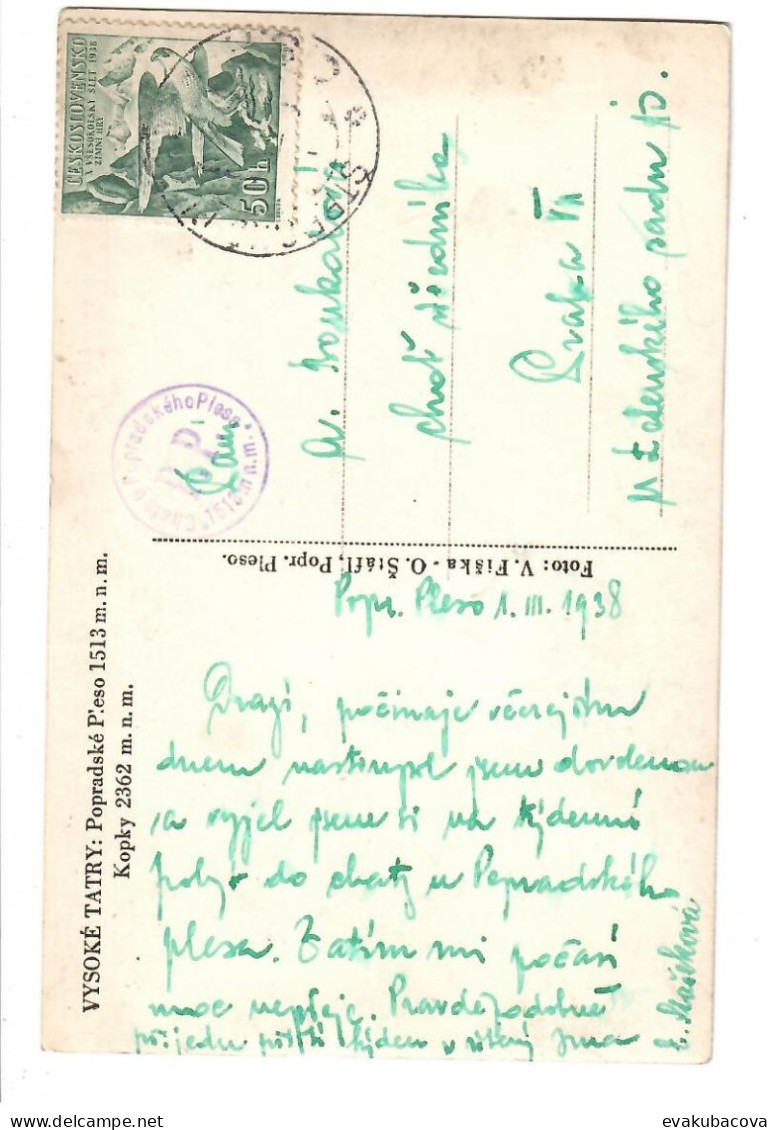 ČESKOSLOVENSKO
X VŠESOKOLSKÝ SLET 1938
ZIMNÍ HRY
50 h
Chata u Popradského Plesa
1513 m n.m.
Paní
choť úředníka
Praha VII
Foto: V. Fiška - O. Štáfl, Popr. Pleso.
VYSOKÉ TATRY: Popradské Pleso 1513 m. n. m.
Kopky 2362 m. n. m.
Popr. Pleso 1. III. 1938
Drazí, počínaje včerejším
dnem nastoupil jsem dovolenou
a vyjel jsem si na týdenní
pobyt do chaty u Popradského
plesa. Zatím mi počasí
moc nepřeje. Pravděpodobně
přijedu příští týden
evakubacova